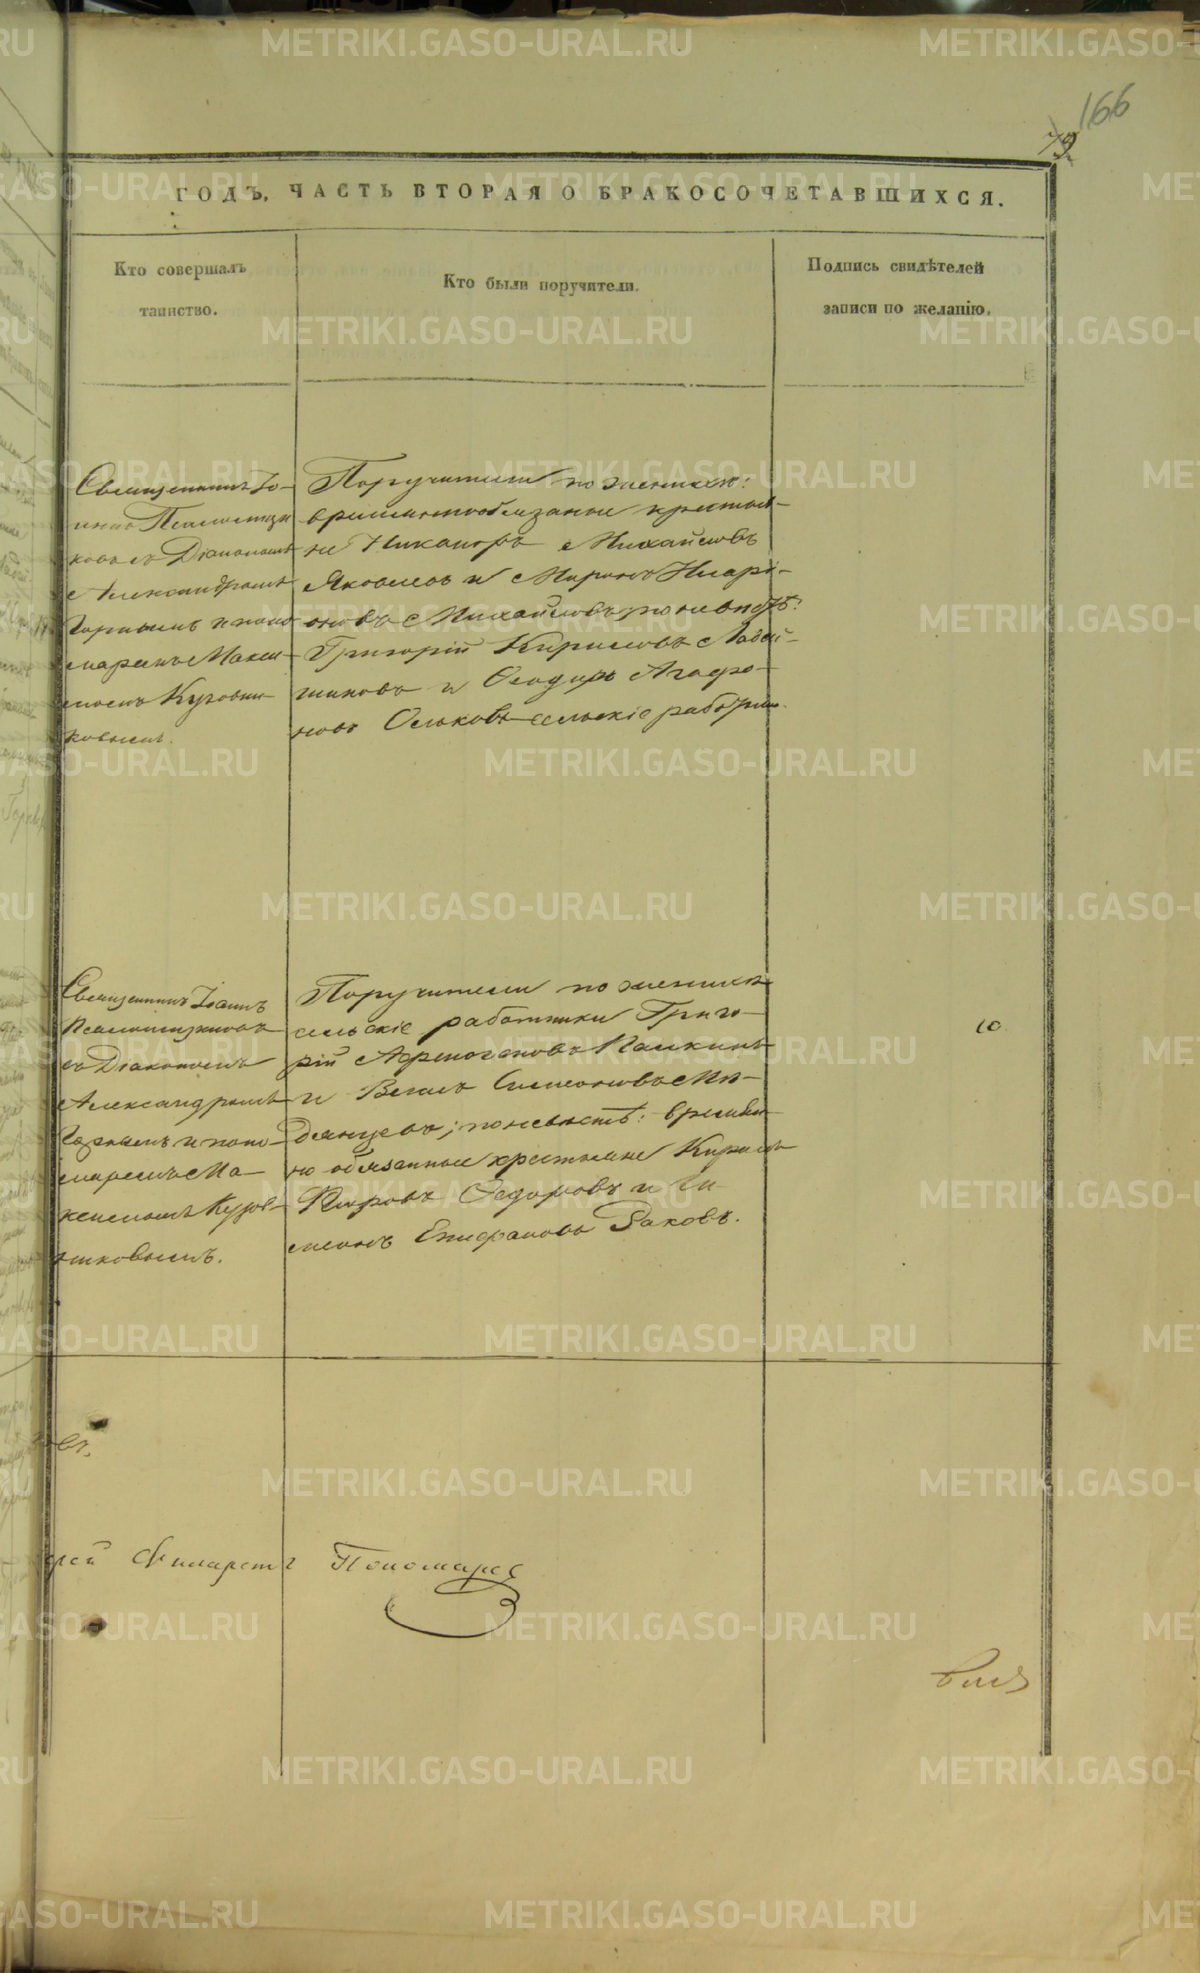 166
79.
ГОДЪ, ЧАСТЬ ВТОРАЯ О БРАКОСОЧЕТАВШИХСЯ.
Кто совершалъ
таинство.
Кто были поручители.
Подпись свидѣтелей
записи по желанію.
Священникъ Іо-
съ Діакономъ
Александромъ
Горнымъ и поно-
маремъ Макси-
момъ Кузовни-
ковымъ.
Поручители по женихѣ:
временнообязанные крестья-
не Никаноръ Михайловъ
Яковлев и Миронъ Иларі-
оновъ Михайловъ, по невѣстѣ:
Григорій Кириловъ
и Ѳеодоръ Агафо-
новъ сельскіе работни.
Священникъ Іоаннъ
съ Діакономъ
Александромъ
Горнымъ и поно-
маремъ Ма-
ксимомъ Кузов-
никовымъ.
Поручители по женихѣ
сельскіе работники Григо-
рій Афиногеновъ
и Симеоновъ Ми-
; по невѣстѣ: времен-
но обязанные крестьяне Кирилъ
Ѳедоровъ и Си-
меонъ Епифановъ Раковъ.
10
рей Филаретъ Пономарев
METRIKI.GASO-URAL.RU